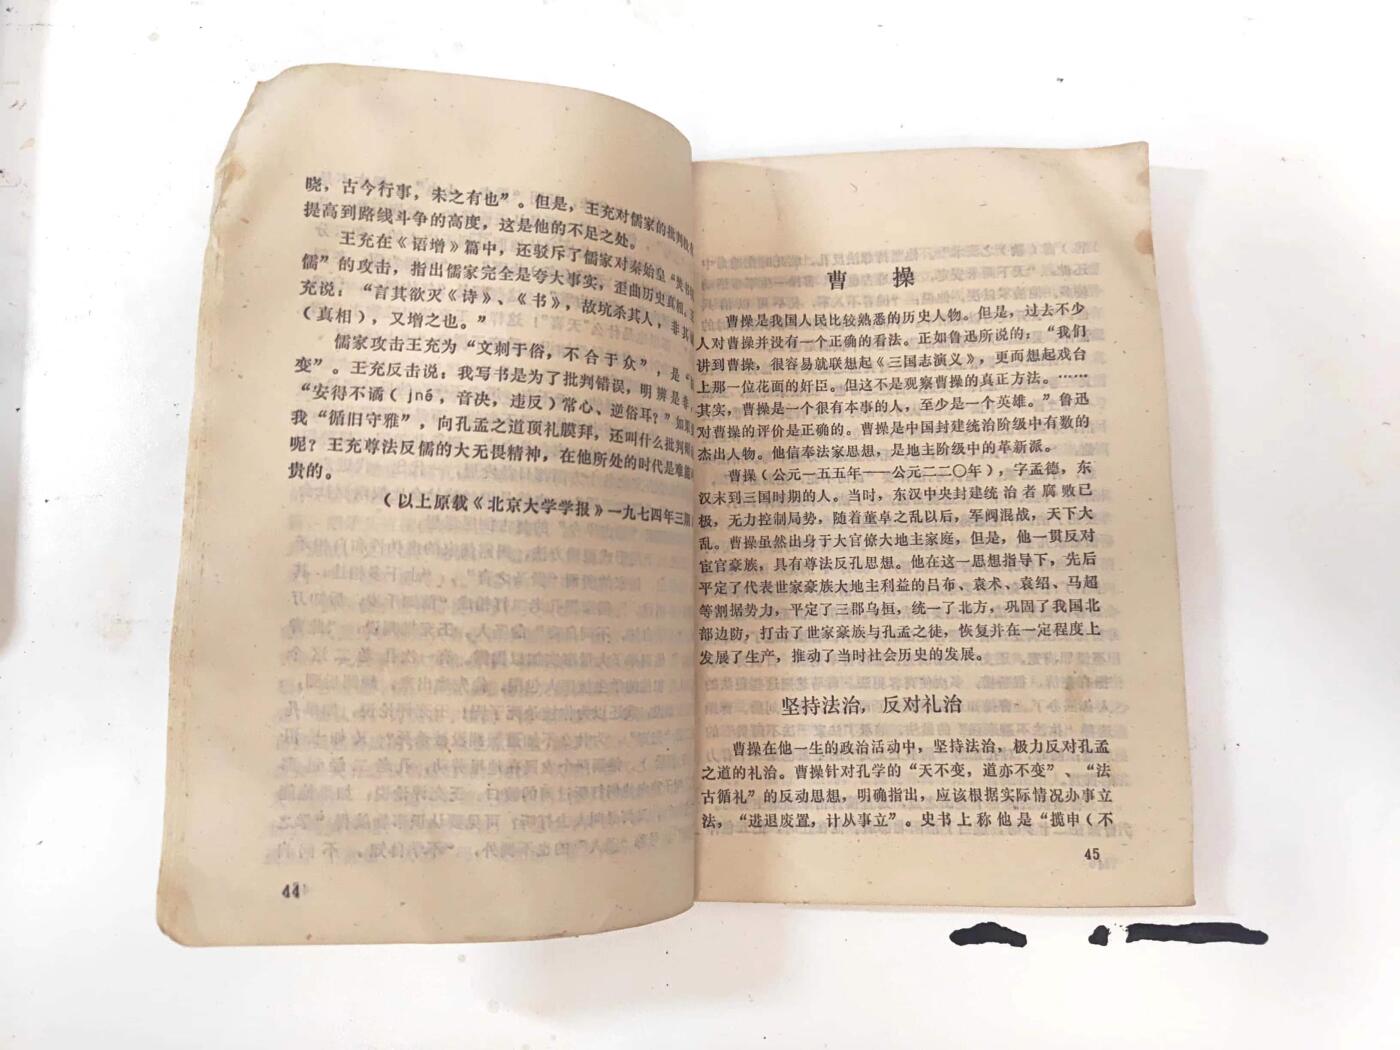 晓，古今行事，未之有也”。但是，王充对儒家的批判没有
提高到路线斗争的高度，这是他的不足之处。
王充在《语增》篇中，还驳斥了儒家对秦始皇“焚书坑
儒”的攻击，指出儒家完全是夸大事实，歪曲历史真相，王
充说：“言其欲灭《诗》、《书》，故坑杀其人，非其
（真相），又增之也。”
儒家攻击王充为“文刺于俗，不合于众”，是
变”。王充反击说：我写书是为了批判错误，明辨是非，
“安得不谲（jué，音决，违反）常心、逆俗耳？”如果
我“循旧守雅”，向孔孟之道顶礼膜拜，还叫什么批判
呢？王充尊法反儒的大无畏精神，在他所处的时代是难能可
贵的。
（以上原载《北京大学学报》一九七四年三期
44
曹 操
曹操是我国人民比较熟悉的历史人物。但是，过去不少
人对曹操并没有一个正确的看法。正如鲁迅所说的：“我们
讲到曹操，很容易就联想起《三国志演义》，更而想起戏台
上那一位花面的奸臣。但这不是观察曹操的真正方法。……
其实，曹操是一个很有本事的人，至少是一个英雄。”鲁迅
对曹操的评价是正确的。曹操是中国封建统治阶级中有数的
杰出人物。他信奉法家思想，是地主阶级中的革新派。
曹操（公元一五五年——公元二二〇年），字孟德，东
汉末到三国时期的人。当时，东汉中央封建统治者腐败已
极，无力控制局势，随着董卓之乱以后，军阀混战，天下大
乱。曹操虽然出身于大官僚大地主家庭，但是，他一贯反对
宦官豪族，具有尊法反孔思想。他在这一思想指导下，先后
平定了代表世家豪族大地主利益的吕布、袁术、袁绍、马超
等割据势力，平定了三郡乌桓，统一了北方，巩固了我国北
部边防，打击了世家豪族与孔孟之徒，恢复并在一定程度上
发展了生产，推动了当时社会历史的发展。
坚持法治，反对礼治
曹操在他一生的政治活动中，坚持法治，极力反对孔孟
之道的礼治。曹操针对孔学的“天不变，道亦不变”、“法
古循礼”的反动思想，明确指出，应该根据实际情况办事立
法，“进退废置，计从事立”。史书上称他是“揽申（不
45